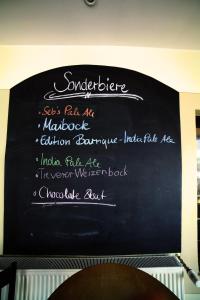 Sonderbiere
• Seb's Pale Ale
• Maibock
• Edition Barrique-India Pale Ale
• India Pale Ale
• Trevererer Weizenbock
• Chocolate Stout